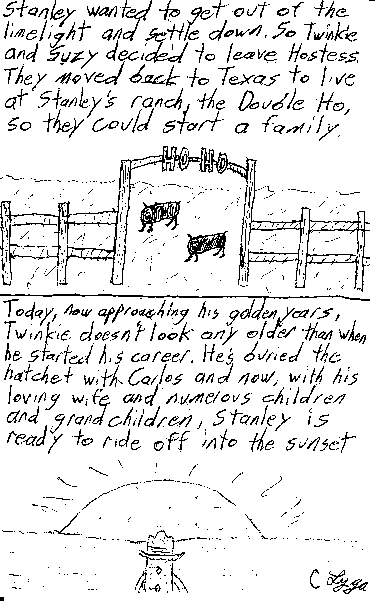 Stanley wanted to get out of the
limelight and settle down. So Twinkie
and Suzy decided to leave Hostess.
They moved back to Texas to live
at Stanley's ranch, the Double Ho,
so they could start a family.
HO-HO
Today, now approaching his golden years,
Twinkie doesn't look any older than when
he started his career. He's buried the
hatchet with Carlos and now, with his
loving wife and numerous children
and grandchildren, Stanley is
ready to ride off into the sunset
C Lyga